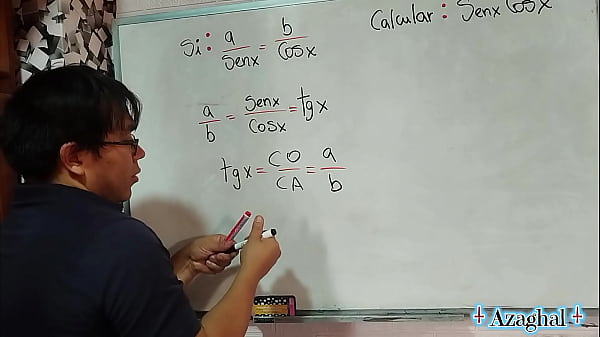 Si: a/Senx = b/Cosx
Calcular: Senx Cosx
a/b = Senx/Cosx = tgx
tgx = CO/CA = a/b
Azaghal